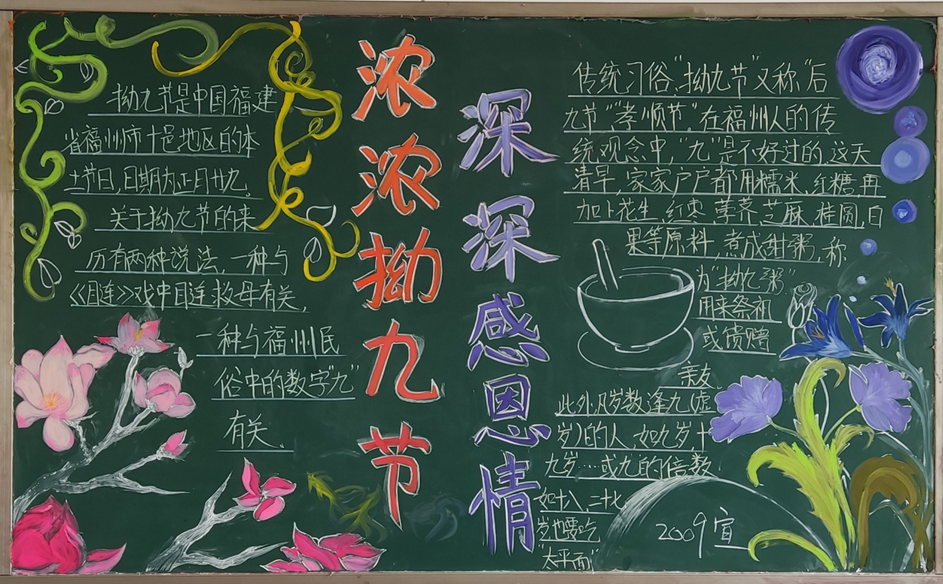 拗九节是中国福建
省福州市十邑地区的本
土节日,日期为正月廿九。
关于拗九节的来
历有两种说法,一种与
《目连》戏中目连救母有关,
一种与福州民
俗中的数字"九"
有关。
浓浓拗九节
深深感恩情
传统习俗"拗九节"又称"后
九节""孝顺节"。在福州人的传
统观念中,"九"是不好过的,这天
清早,家家户户都用糯米,红糖,再
加上花生,红枣,荸荠,芝麻,桂圆,白
果等原料,煮成甜粥,称
为"拗九粥"
用来祭祖
或馈赠
亲友
此外,凡岁数逢九(虚
岁)的人,如九岁十
九岁……或九的倍数
如十八、二十七
岁也要吃
"太平面"
2009宣